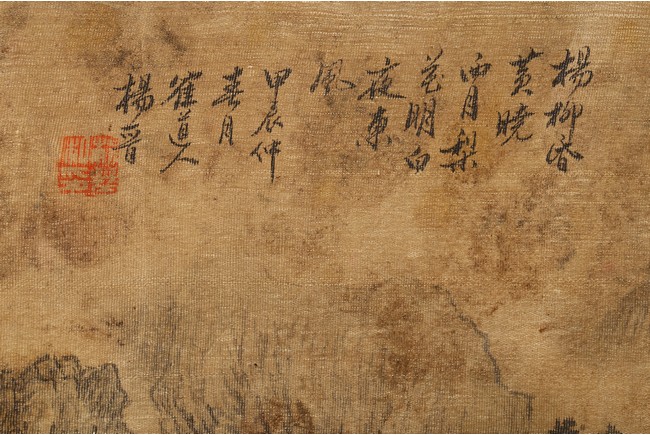 楊柳昏
黄曉
雨月梨
花明白
夜東
風
甲辰仲
春月
崔道人
楊晉